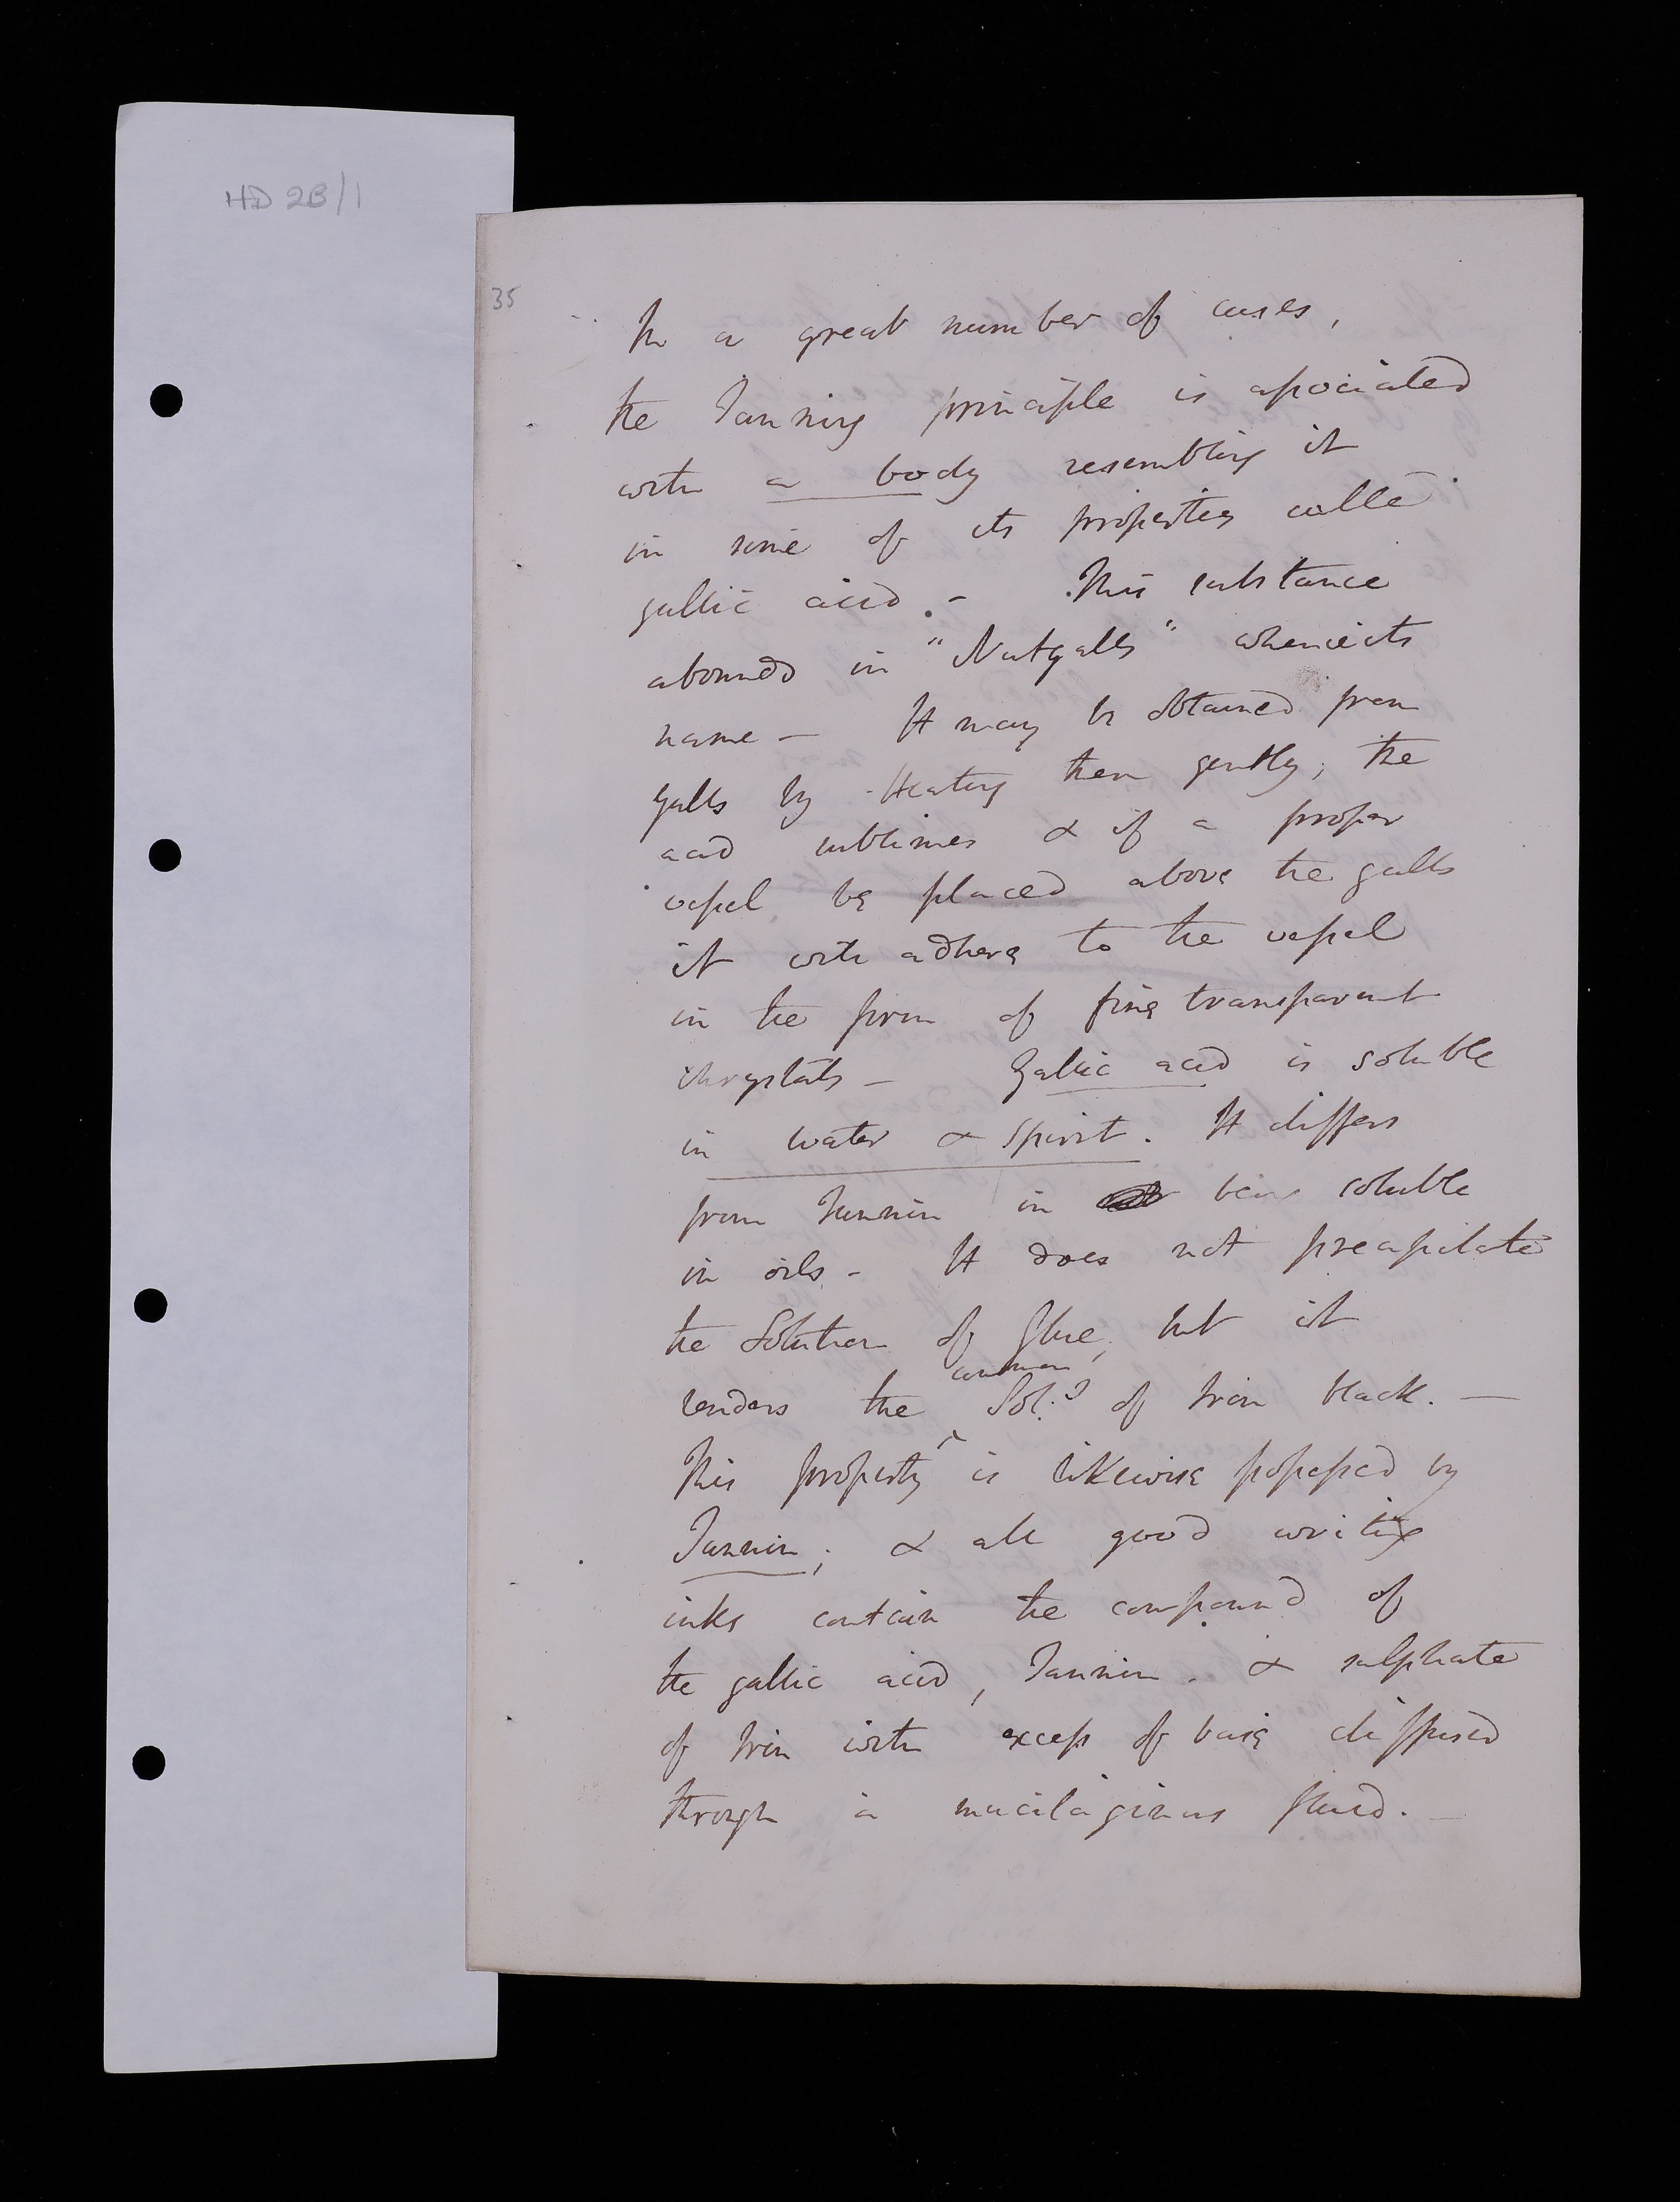 HD 2B/1
35
In a great number of cases,
the Tanning principle is associated
with a body resembling it
in some of its properties calle
gallic acid. - This substance
abounds in "Nutgalls" whence its
name - It may be obtained from
galls by Heating them gently; the
acid sublimes & if a proper
vessel be placed above the galls
it with adhere to the vessel
in the form of fine transparent
chrystals - Gallic acid is soluble
in water & spirit. It differs
from Tannin in being soluble
in oils - It does not precipitate
the Solution of Glue, but it
common
renders the Sol:s of Iron black. -
This property is likewise possessed by
Tannin; & all good writing
inks contain the compound of
the gallic acid, Tannin & sulphate
of Iron with excess of base diffused
through a mucilaginous fluid. -